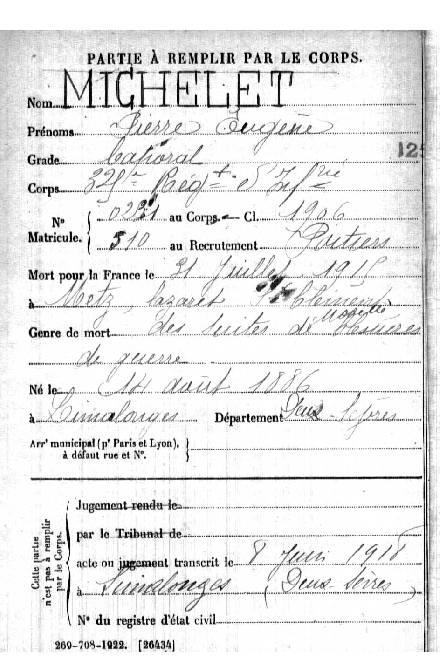 PARTIE À REMPLIR PAR LE CORPS.
Nom MICHELET
Prénoms Pierre Eugène
125
Grade Caporal
Corps 325e Régt d'Infrie
N° Matricule. { 0221 au Corps. — Cl. 1906
510 au Recrutement Poitiers
Mort pour la France le 31 Juillet 1915
à Metz, lazaret St Clément
Moselle
Genre de mort des suites de blessures
de guerre
Né le 14 août 1886
à Limalonges Département Deux-Sèvres
Arrt municipal (pr Paris et Lyon), à défaut rue et N°. {
Cette partie n'est pas à remplir par le Corps.
Jugement rendu le
par le Tribunal de
acte ou jugement transcrit le 8 Juin 1918
à Limalonges (Deux Sèvres)
N° du registre d'état civil
269-708-1922. [26434]